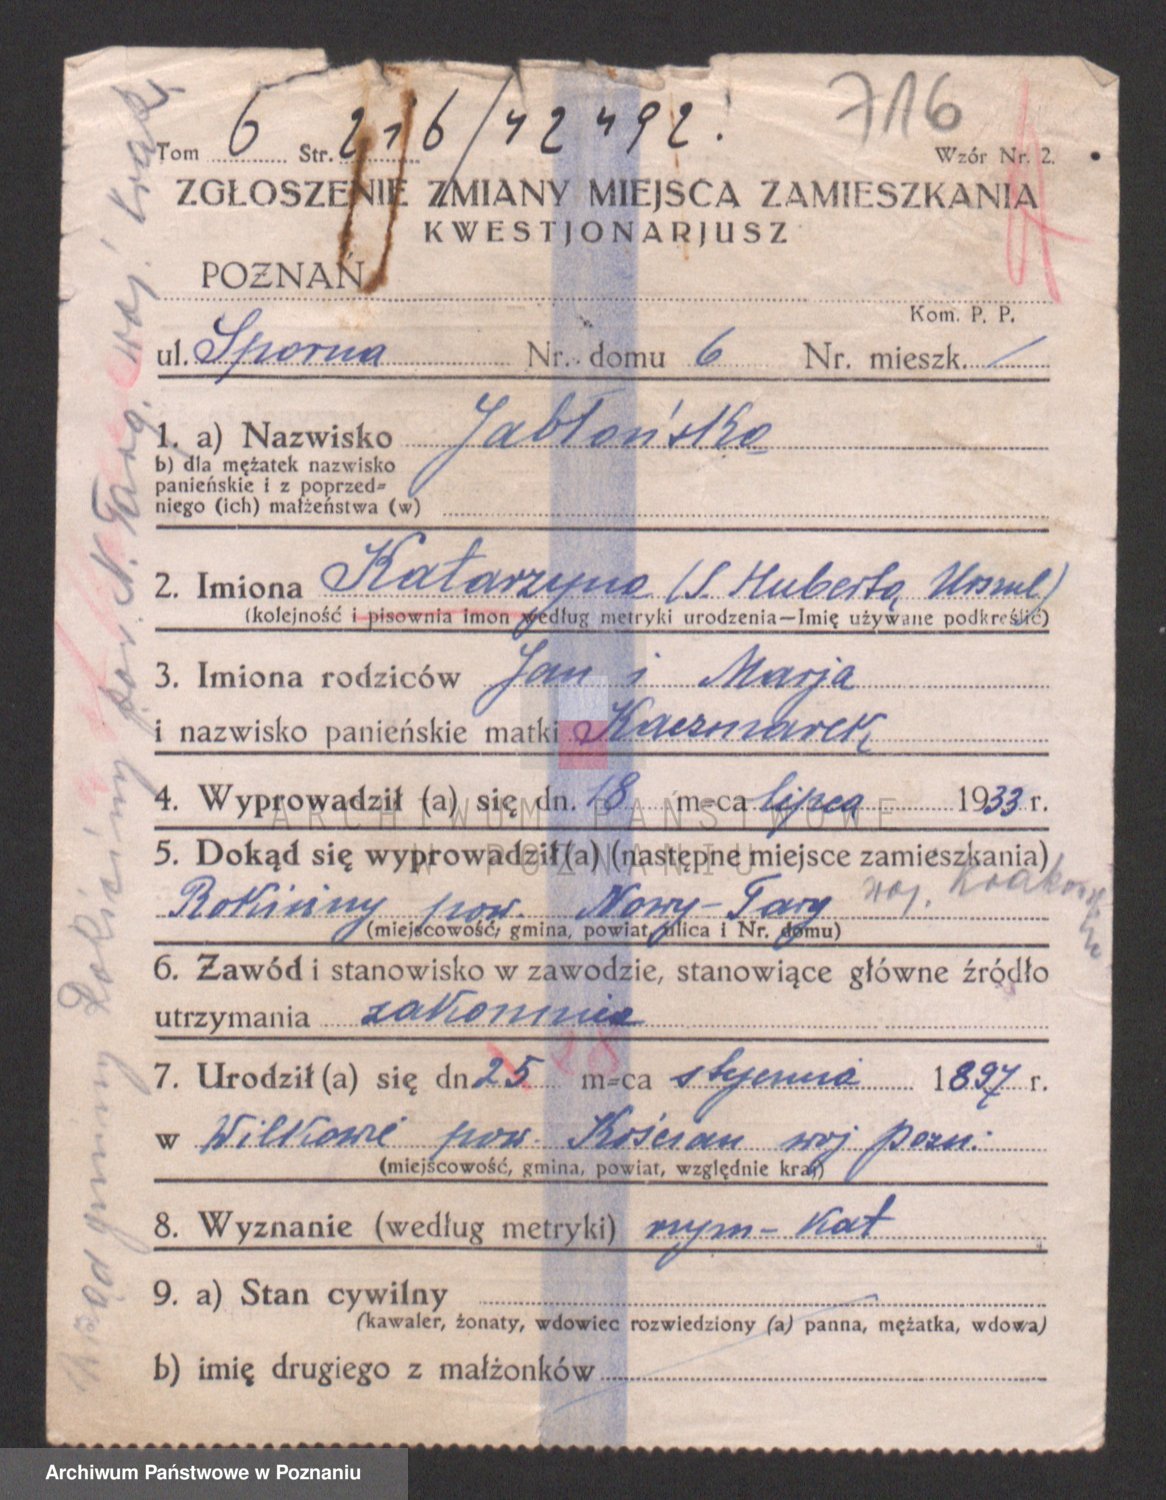 716
Tom 6 Str. 216/42492.
Wzór Nr. 2.
ZGŁOSZENIE ZMIANY MIEJSCA ZAMIESZKANIA
KWESTJONARJUSZ
POZNAŃ
Kom. P. P.
ul. Sporna Nr. domu 6 Nr. mieszk. /
1. a) Nazwisko Jabłońska
b) dla mężatek nazwisko
panieńskie i z poprzed-
niego (ich) małżeństwa (w)
2. Imiona Katarzyna (S. Huberta Urszul)
(kolejność i pisownia imon według metryki urodzenia—Imię używane podkreślić)
3. Imiona rodziców Jan i Marja
i nazwisko panieńskie matki Kaczmarek
4. Wyprowadził (a) się dn. 18 m-ca lipca 1933 r.
ARCHIWUM PAŃSTWOWE
W POZNANIU
5. Dokąd się wyprowadził(a) (następne miejsce zamieszkania)
Rokiciny pow. Nowy-Targ woj. Krakowskie
(miejscowość, gmina, powiat, ulica i Nr. domu)
6. Zawód i stanowisko w zawodzie, stanowiące główne źródło
utrzymania zakonnica
7. Urodził (a) się dn 25 m-ca stycznia 1897 r.
w Wilkowie pow. Kościan woj pozn.
(miejscowość, gmina, powiat, względnie kraj)
8. Wyznanie (według metryki) rzym-kat
9. a) Stan cywilny
(kawaler, żonaty, wdowiec rozwiedziony (a) panna, mężatka, wdowa)
b) imię drugiego z małżonków
Urząd gminny Rokiciny pow. N. Targ. woj. Krak.
Archiwum Państwowe w Poznaniu